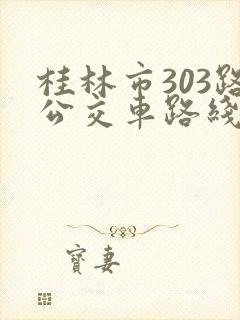 桂林市303路
公交車路綫
寶妻